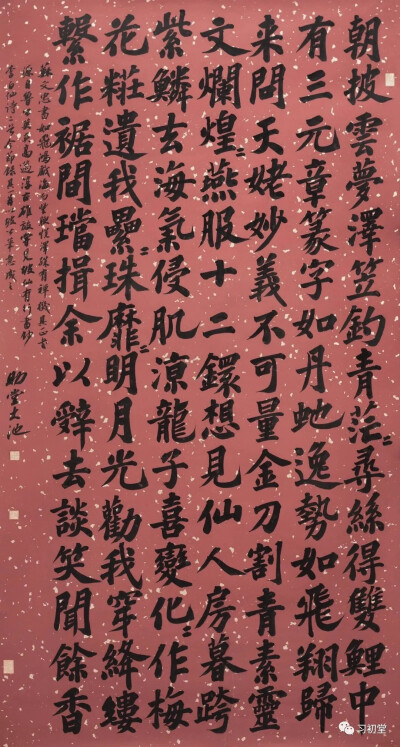 朝披雲夢澤笠釣青茫〻尋絲得雙鯉中
有三元章篆字如丹虵逸勢如飛翔歸
来問天姥妙義不可量金刀割青素靈
文爛煌〻燕服十二鐶想見仙人房暮跨
紫鱗去海氣侵肌涼龍子喜變化〻作梅
花粧遺我纍〻珠靡〻明月光勸我穿絳縷
繫作裾間璫揖余以辤去談笑聞餘香
蘇文忠書如飛鴻戲海
习初堂